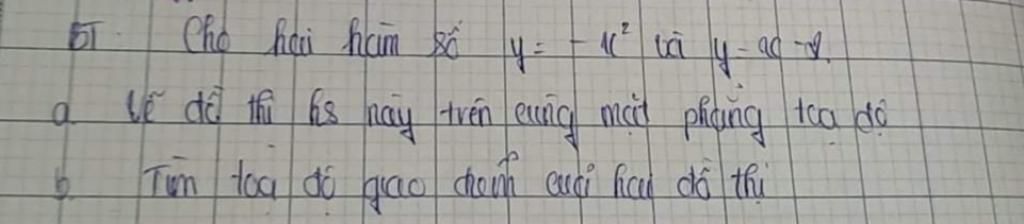 BT. Cho hai hàm số y = - x² và y = x - 2.
a Vẽ đồ thị hs này trên cùng mặt phẳng tọa độ
b. Tìm tọa độ giao điểm của hai đồ thị